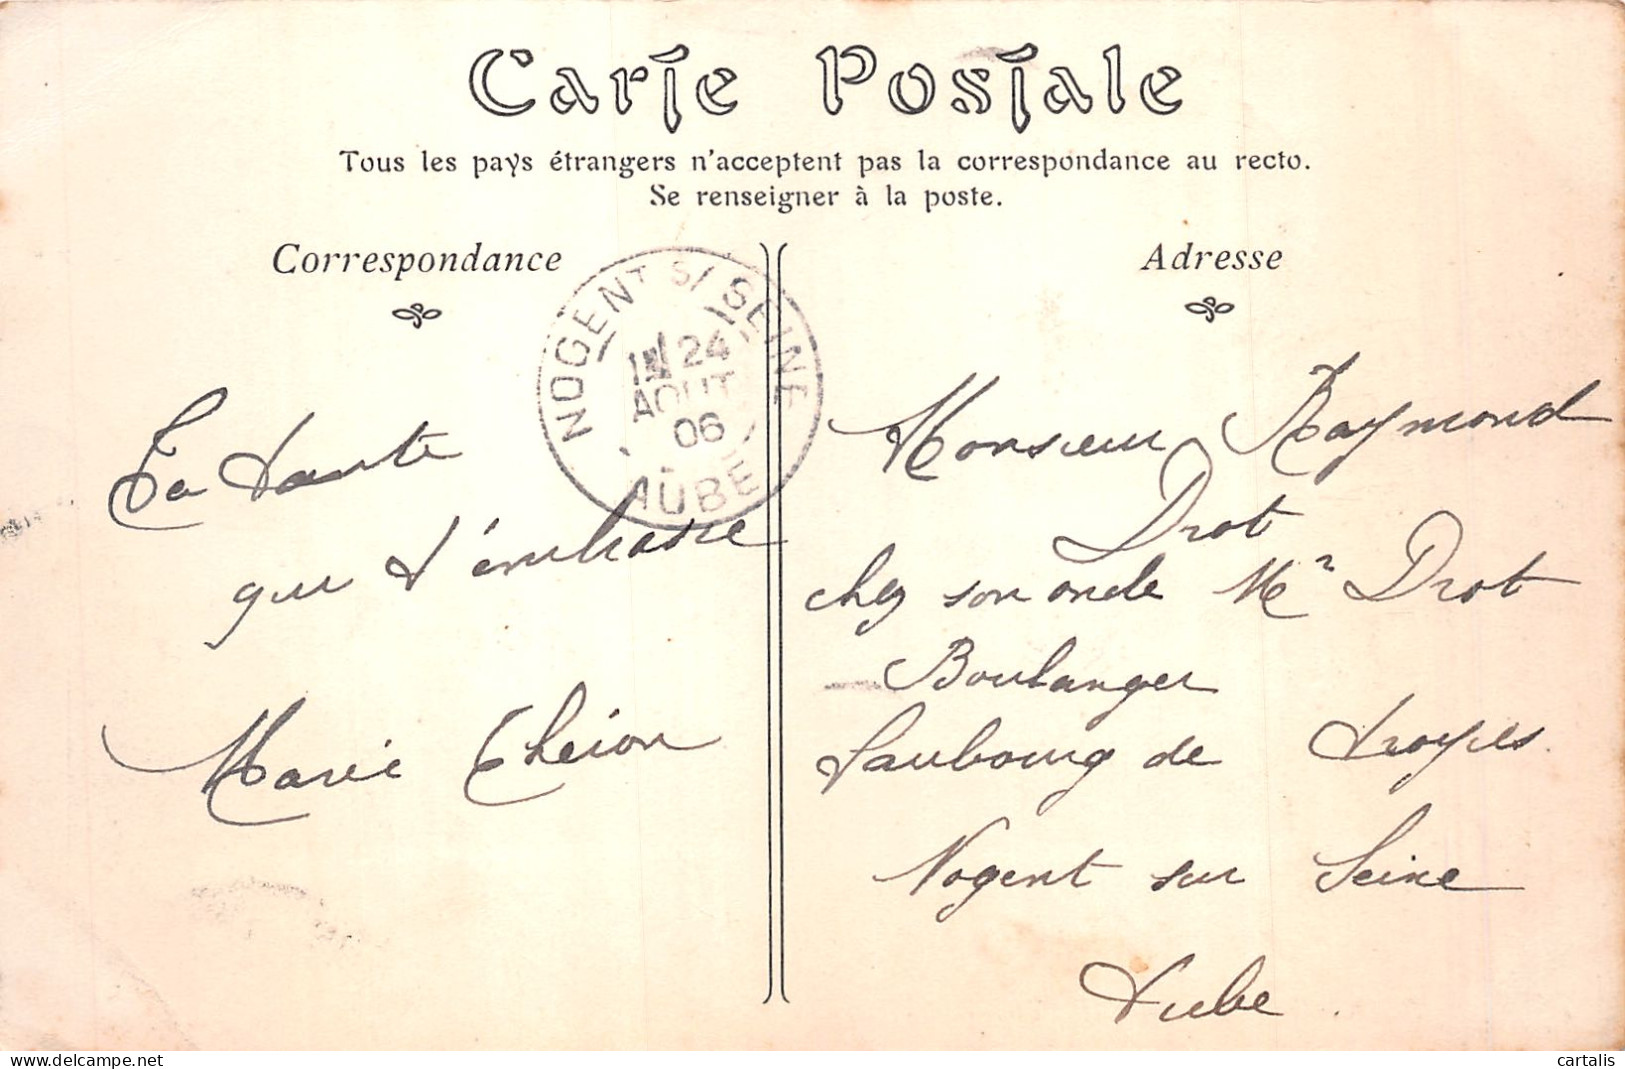 Carte Postale
Tous les pays étrangers n'acceptent pas la correspondance au recto.
Se renseigner à la poste.
Correspondance
Adresse
NOGENT S/ SEINE
24
AOUT
06
AUBE
Ta tante
qui t'embrasse
Marie
Monsieur Raymond
Drot
chez son oncle Mr Drot
Boulanger
faubourg de troyes
Nogent sur Seine
Aube.
delcampe.net
cartalis